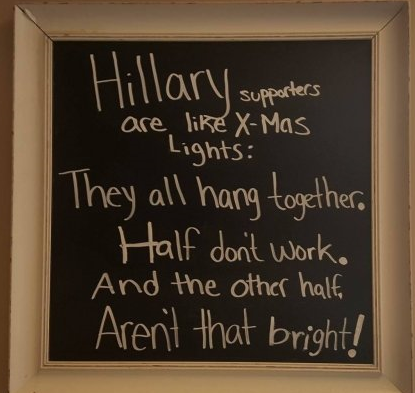 Hillary supporters
are like X-Mas
Lights:
They all hang together.
Half don't work.
And the other half,
Aren't that bright!